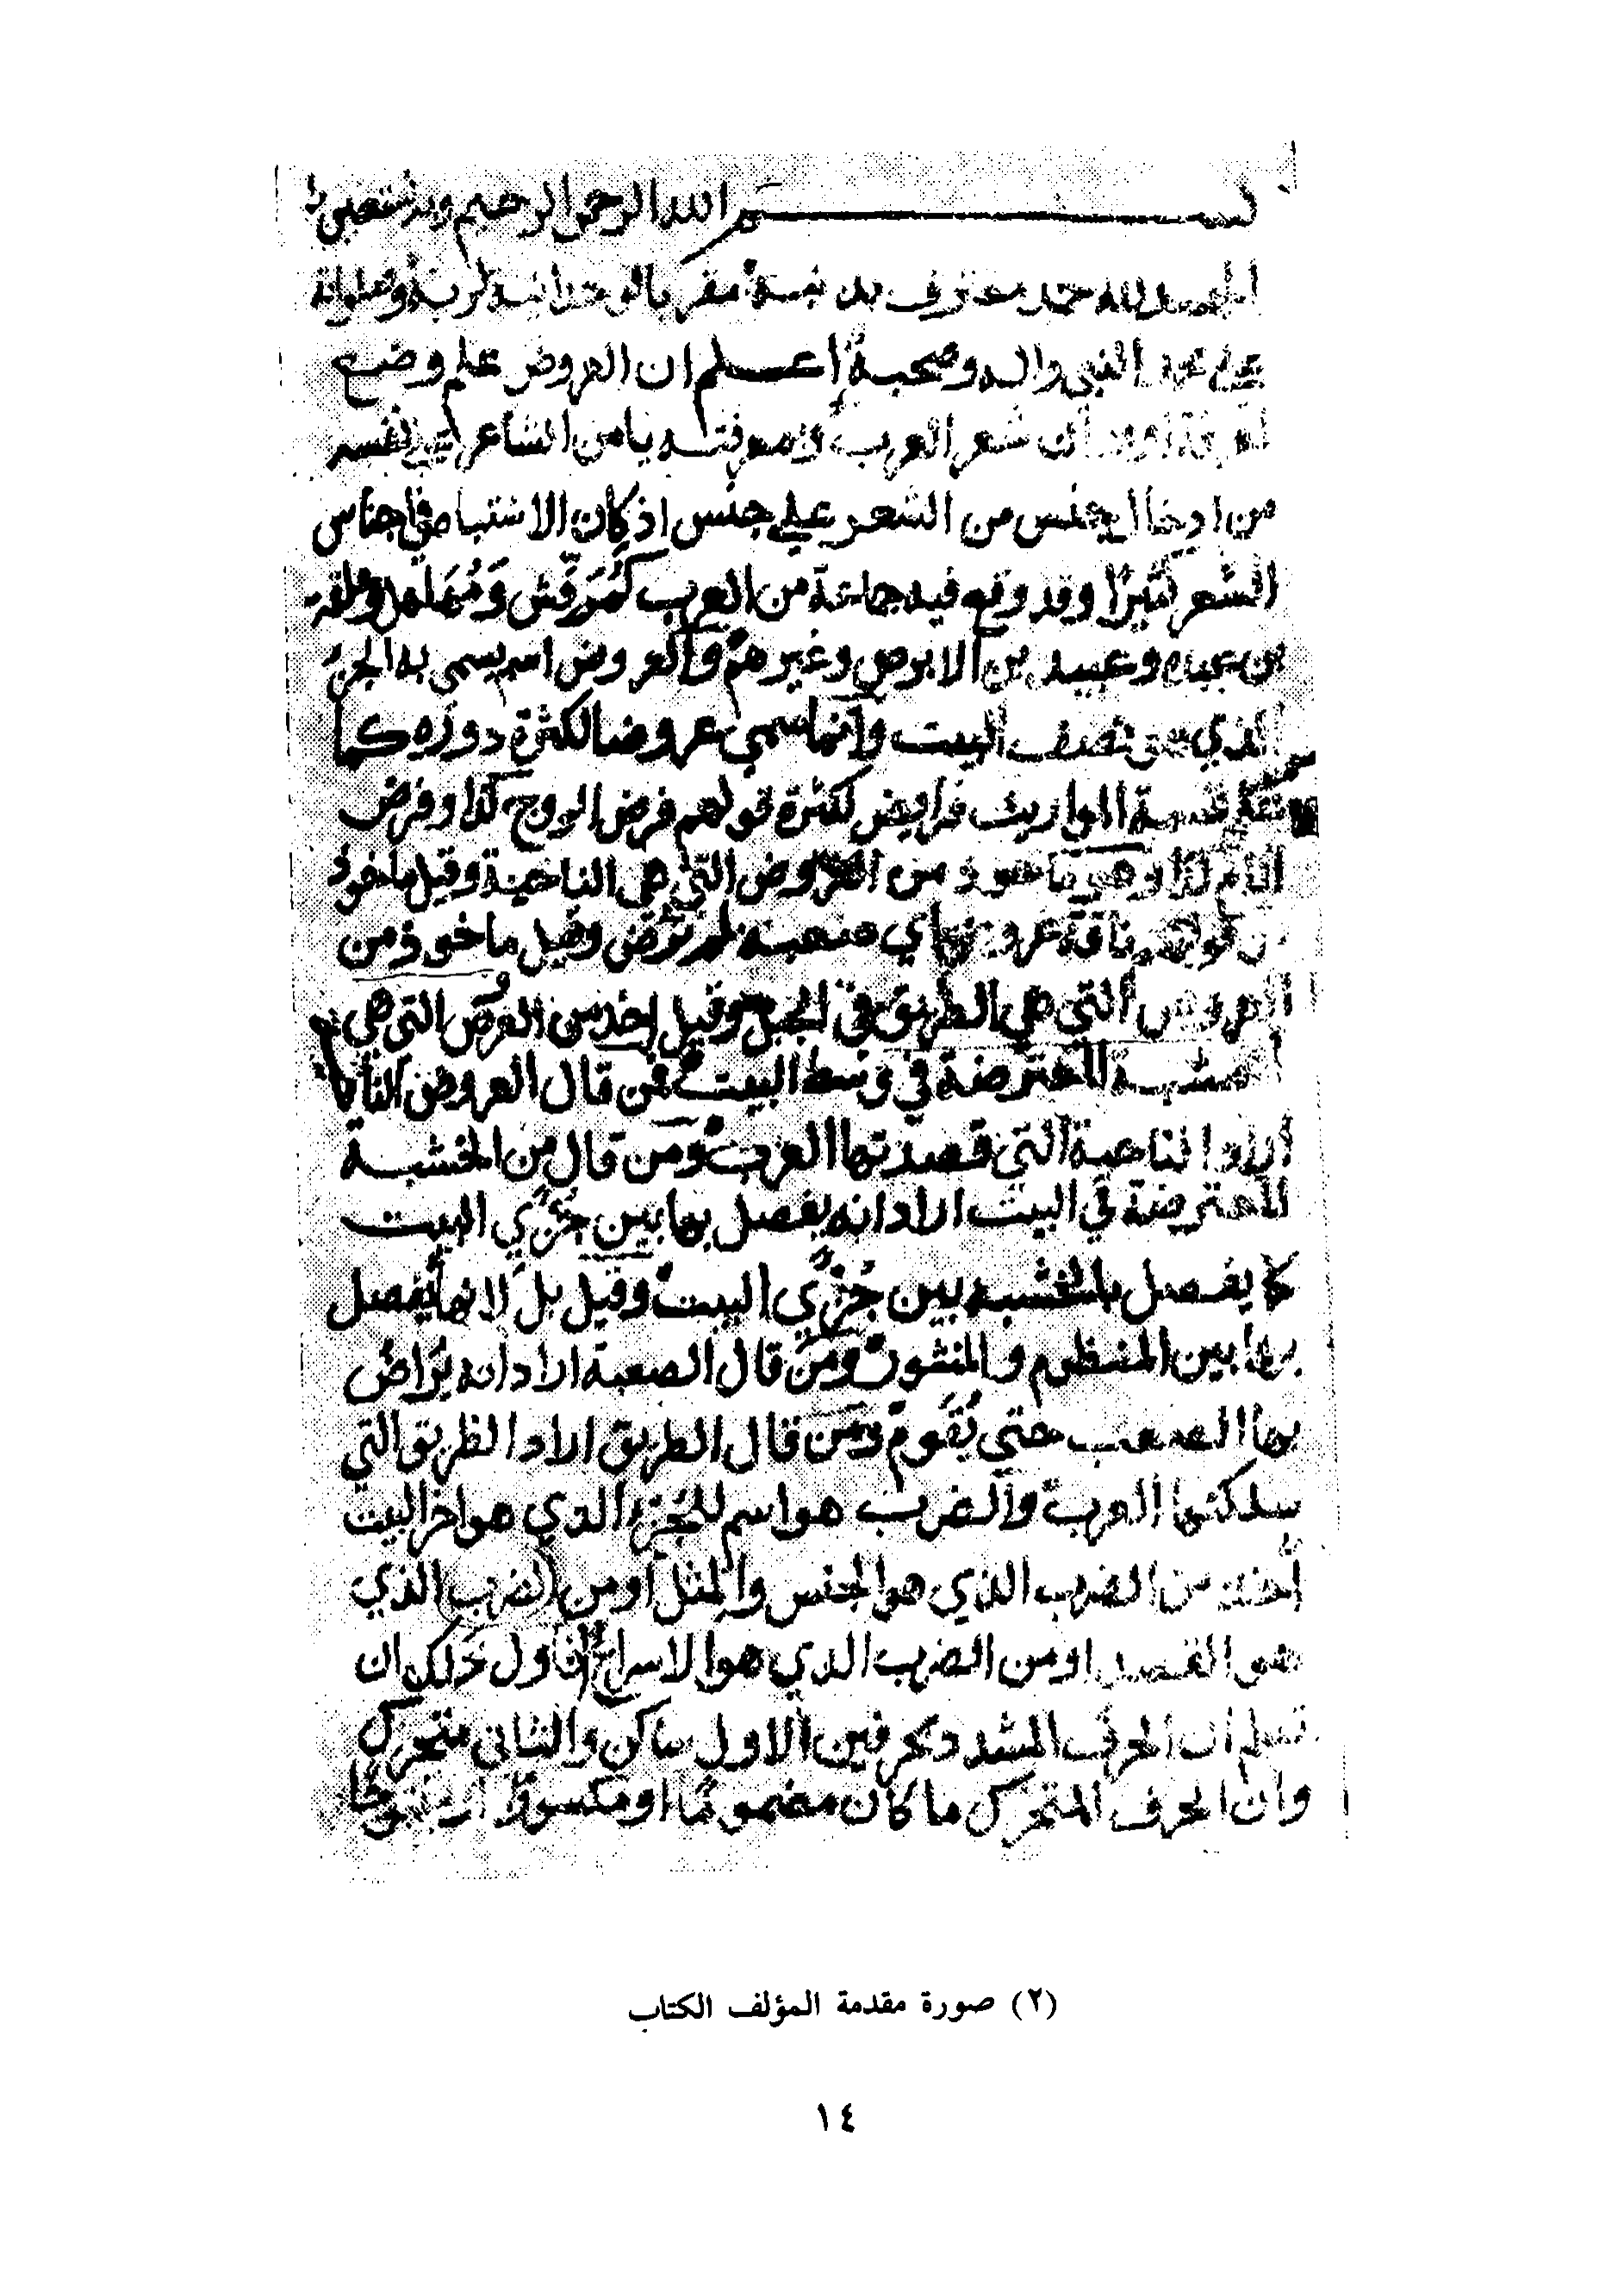 بسم الله الرحمن الرحيم وبه نستعين
الحمد لله حمد معترف بذنبه مقر بالوحدانية لربه وصلواته
على محمد النبي واله وصحبه إعلم ان العروض علم وضع
لمعرفة اوزان شعر العرب وبمعرفته يامن الشاعر على نفسه
من ادخال جنس من الشعر على جنس اذ كان الاشتباه في اجناس
الشعر كثيرًا وقد وقع فيه جماعة من العرب كمُرَقّش وَمُهَلهل وعلقمة
بن عبدة وعبيد بن الابرص وغيرهم والعروض اسم يسمى به الجزء
الذي في نصف البيت وانما سمي عروضا لكثرة دوره كما
قسمة المواريث فرايض لكثرة قولهم فرض الزوج كذا وفرض
الام كذا وهي ماخوذ من العروض التي هي الناحية وقيل ماخوذ
من قولهم ناقة عروض اي صعبة لم ترض وقيل ماخوذ من
العروض التي هي الطريق في الجبل وقيل اخذ من العروض التي هي
الخشبة المعترضة في وسط البيت فمن قال العروض الناحية
اراد الناحية التي قصدتها العرب ومن قال من الخشبة
المعترضة في البيت اراد انه يفصل بها بين جُزْئي البيت
كما يفصل بالخشبه بين جُزْئي البيت وقيل بل لانها يفصل
بها بين المنظوم والمنثور ومن قال الصعبة اراد انه يُرَاضُ
بها الصعب حتى يُقَوم ومن قال الطريق اراد الطريق التي
سلكتها العرب والضرب هو اسم للجزء الذي هو اخر البيت
أخذ من الضرب الذي هو الجنس والمثل او من الضرب الذي
هو القصد او من الضرب الذي هو الاسراع فاول ذلك ان
تعلم ان الحرف المشدد بحرفين الاول ساكن والثاني متحرك
وان الحرف المتحرك ما كان مضمومًا او مكسورًا او مفتوحًا
(٢) صورة مقدمة المؤلف الكتاب
١٤